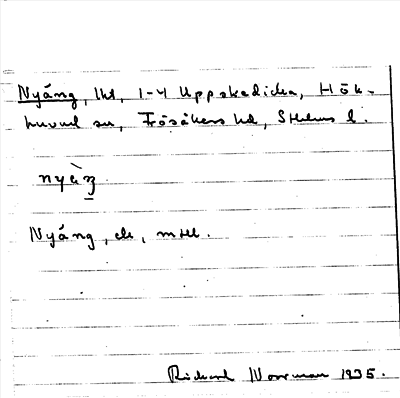 Nyäng, lht, 1-4 Uppskedika, Hök-
huvud sn, Frösåkers hd, Sthlms l.
nyàŋ
Nyäng, ek, mtll.
Rickard Norrman 1935.